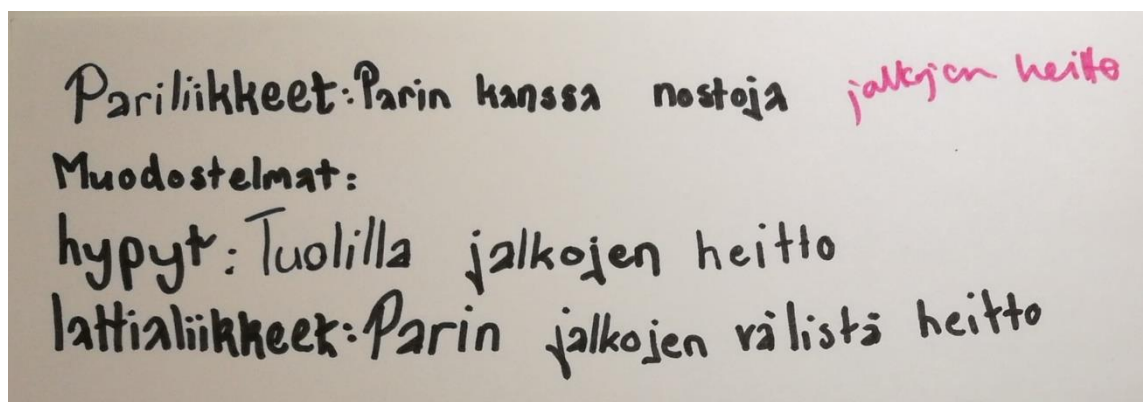 Pariliikkeet: Parin kanssa nostoja jalkojen heitto
Muodostelmat:
hypyt: Tuolilla jalkojen heitto
lattialiikkeet: Parin jalkojen välistä heitto